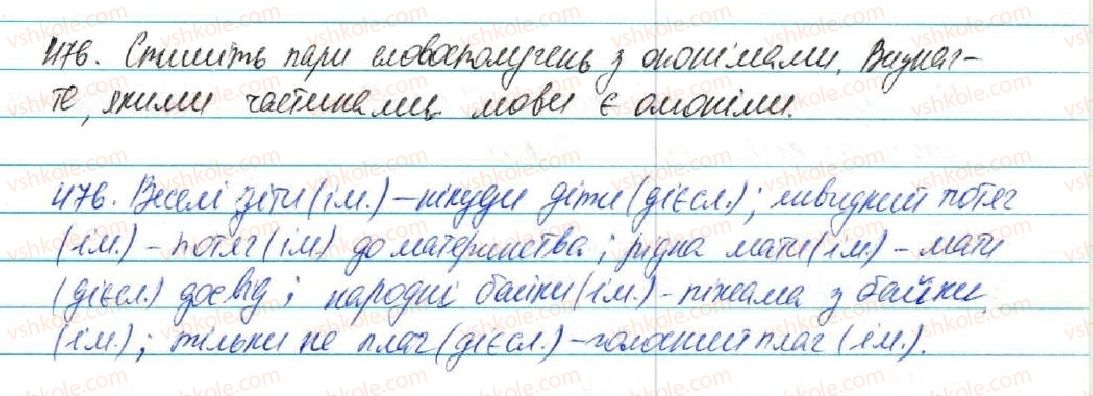 476. Спишіть пари словосполучень з омонімами. Визнач-
те, якими частинами мови є омоніми.
476. Веселі діти (ім.) – нікуди діти (дієсл.); швидкий потяг
(ім.) – потяг (ім.) до материнства; рідна мати (ім.) – мати
(дієсл.) досвід; народні байки (ім.) – піжама з байки
(ім.); тільки не плач (дієсл.) – голосний плач (ім.).